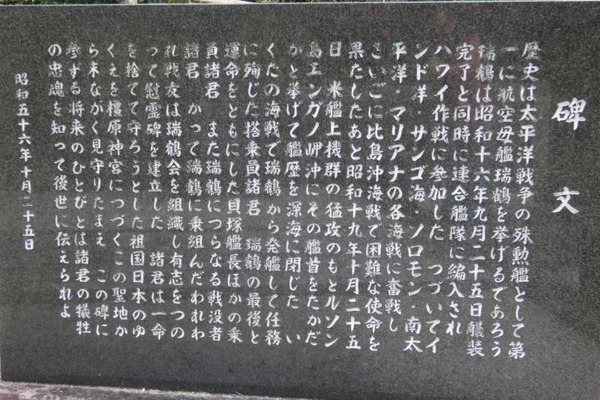 碑文
歴史は太平洋戦争の殊勲艦として第
一に航空母艦瑞鶴を挙げるであろう
瑞鶴は昭和十六年九月二十五日艤装
完了と同時に連合艦隊に編入され
ハワイ作戦に参加した　つづいてイ
ンド洋・サンゴ海・ソロモン・南太
平洋・マリアナの各海戦に奮戦し
さいごに比島沖海戦で困難な使命を
果たしたあと昭和十九年十月二十五
日　米艦上機群の猛攻のもとルソン
島エンガノ岬沖にその艦首をたかだ
かと挙げて艦歴を深海に閉じた　い
くたの海戦で瑞鶴から発艦して任務
に殉じた搭乗員諸君　瑞鶴の最後と
運命をともにした貝塚艦長ほかの乗
員諸君　また瑞鶴につらなる戦没者
諸君　かつて瑞鶴に乗組んだわれわ
れ戦友は瑞鶴会を組織し有志をつの
って慰霊碑を建立した　諸君は一命
を捨てて守ろうとした祖国日本のゆ
くえを橿原神宮につづくこの聖地か
ら末ながく見守りたまえ　この碑に
参ずる将来のひとびとは諸君の犠牲
の忠魂を知って後世に伝えられよ
昭和五十六年十月二十五日